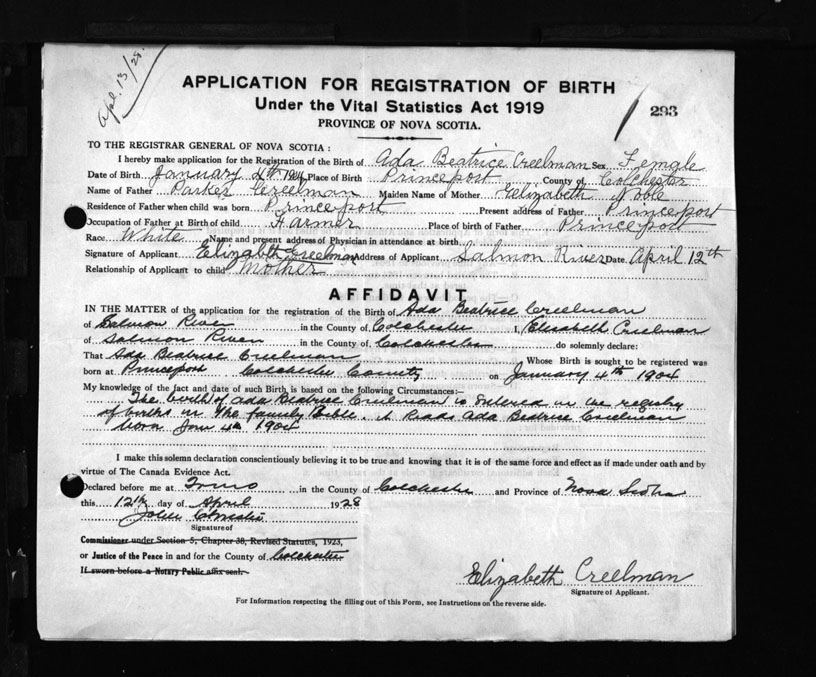 Apl. 13/28.
APPLICATION FOR REGISTRATION OF BIRTH
Under the Vital Statistics Act 1919
293
PROVINCE OF NOVA SCOTIA.
TO THE REGISTRAR GENERAL OF NOVA SCOTIA :
I hereby make application for the Registration of the Birth of Ada Beatrice Creelman Sex Female
Date of Birth January 4th 1904 Place of Birth Princeport County of Colchester
Name of Father Parker Creelman Maiden Name of Mother Elizabeth
Residence of Father when child was born Princeport Present address of Father Princeport
Occupation of Father at Birth of child Farmer Place of birth of Father Princeport
Race White Name and present address of Physician in attendance at birth
Signature of Applicant Elizabeth Creelman Address of Applicant Salmon River Date April 12th
Relationship of Applicant to child Mother
AFFIDAVIT
IN THE MATTER of the application for the registration of the Birth of Ada Beatrice Creelman
of Salmon River in the County of Colchester I, Elizabeth Creelman
of Salmon River in the County of Colchester do solemnly declare:
That Ada Beatrice Creelman Whose Birth is sought to be registered was
born at Princeport Colchester County on January 4th 1904
My knowledge of the fact and date of such Birth is based on the following Circumstances:—
The birth of Ada Beatrice Creelman is entered in the registry
of births in The family Bible. it Reads Ada Beatrice Creelman
born Jan 4th 1904
I make this solemn declaration conscientiously believing it to be true and knowing that it is of the same force and effect as if made under oath and by
virtue of The Canada Evidence Act.
Declared before me at Truro in the County of Colchester and Province of Nova Scotia
this 12th day of April 1928
John
Signature of
Commissioner under Section 5, Chapter 38, Revised Statutes, 1923,
or Justice of the Peace in and for the County of Colchester
If sworn before a Notary Public affix seal.
Elizabeth Creelman
Signature of Applicant.
For Information respecting the filling out of this Form, see Instructions on the reverse side.